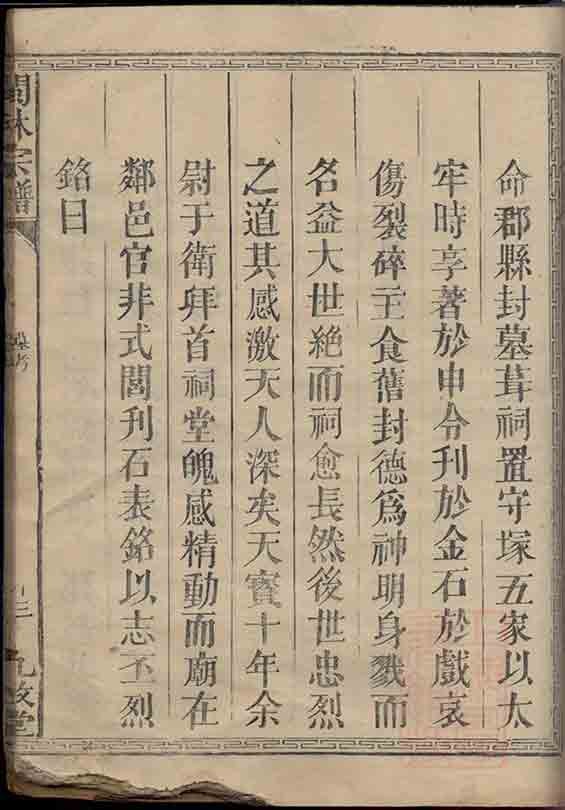 命郡縣封墓葺祠置守塚五家以太
牢時享著於甲令刊於金石於戲哀
傷裂碎主食舊封德爲神明身戮而
名益大世絶而祠愈長然後世忠烈
之道其感激天人深矣天寳十年余
尉于衛拜首祠堂魄感精動而廟在
鄰邑官非式閭刋石表銘以志丕烈
銘曰
林宗譜
墓考
三
九牧堂